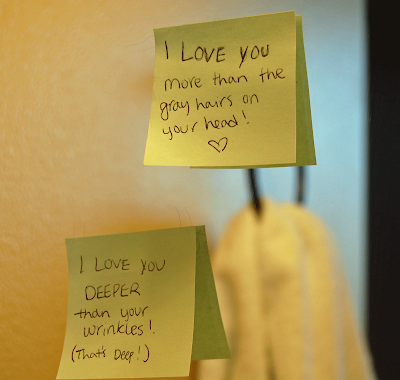 I LOVE YOU
more than the
gray hairs on
your head!
I LOVE YOU
DEEPER
than your
wrinkles!
(That's Deep!)